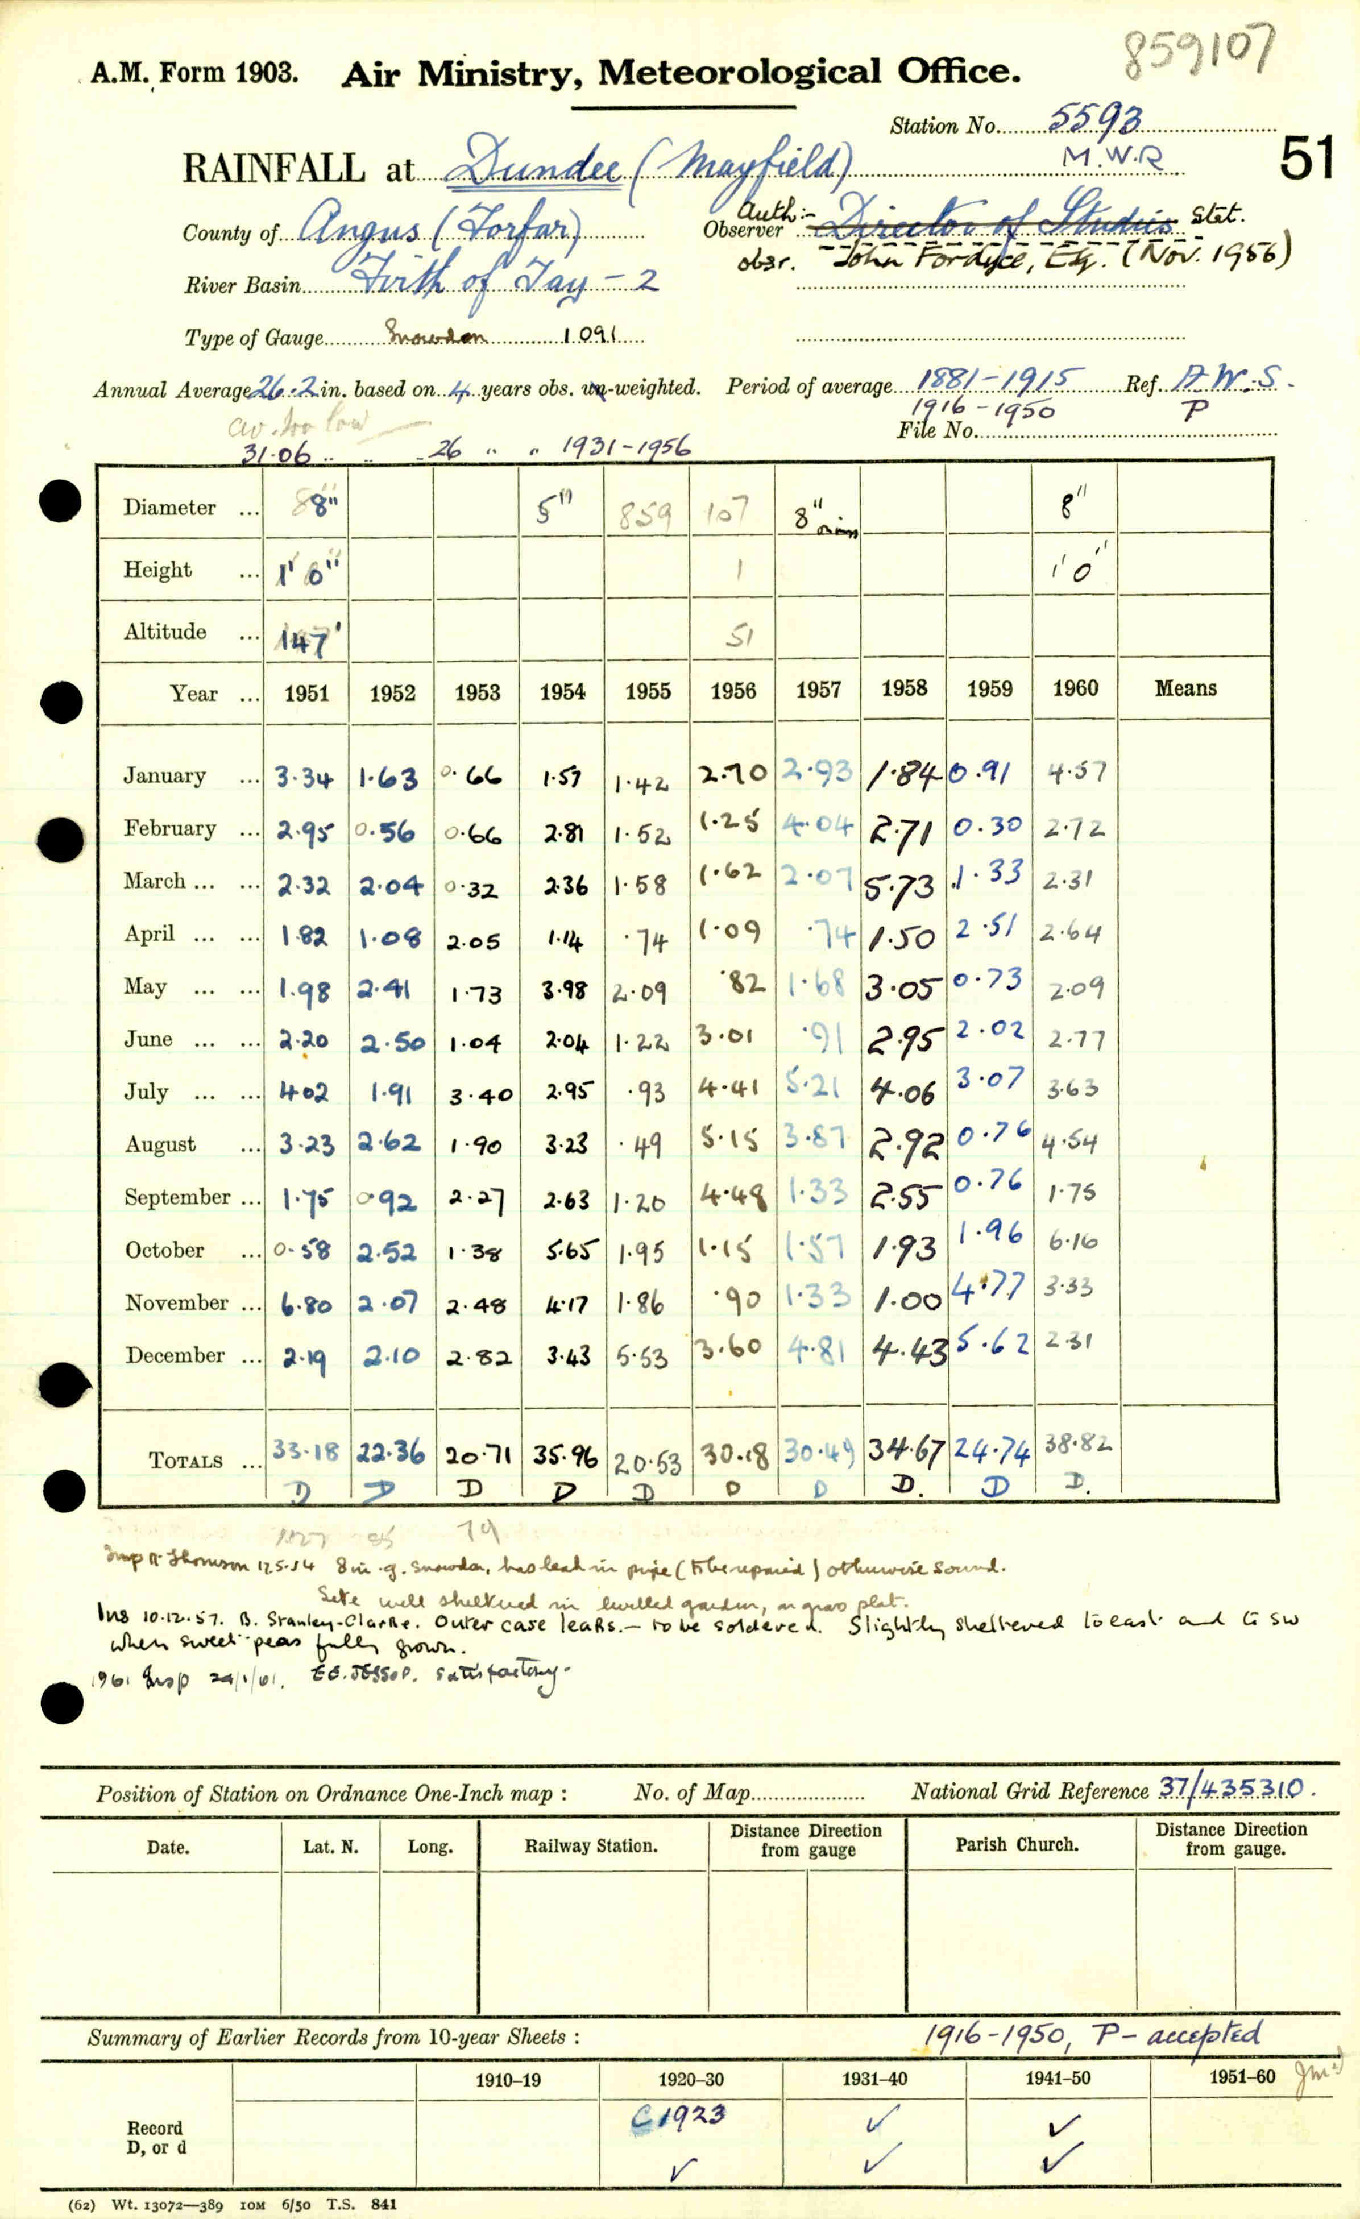 859107
A.M. Form 1903. Air Ministry, Meteorological Office.
Station No. 5593
M.W.R
51
RAINFALL at Dundee (Mayfield)
County of Angus (Forfar)
Auth:- Observer Director of Studies Stat.
obsr. John Fordyce, Esq. (Nov. 1956)
River Basin Firth of Tay - 2
Type of Gauge Snowdon 1091
Annual Average 26.2 in. based on 4 years obs. un-weighted. Period of average 1881-1915 Ref. A.W.S.
1916-1950 P
av. too low
File No.
31.06 " " 26 " " 1931-1956
Diameter ... 8" 5" 859 107 8" 8"
Height ... 1' 0" 1 1' 0"
Altitude ... 147' 51
Year ... 1951 1952 1953 1954 1955 1956 1957 1958 1959 1960 Means
January ... 3.34 1.63 0.66 1.57 1.42 2.70 2.93 1.84 0.91 4.57
February ... 2.95 0.56 0.66 2.81 1.52 1.25 4.04 2.71 0.30 2.72
March ... ... 2.32 2.04 0.32 2.36 1.58 1.62 2.07 5.73 1.33 2.31
April ... ... 1.82 1.08 2.05 1.14 .74 1.09 .74 1.50 2.51 2.64
May ... ... 1.98 2.41 1.73 3.98 2.09 .82 1.68 3.05 0.73 2.09
June ... ... 2.20 2.50 1.04 2.04 1.22 3.01 .91 2.95 2.02 2.77
July ... ... 4.02 1.91 3.40 2.95 .93 4.41 5.21 4.06 3.07 3.63
August ... 3.23 2.62 1.90 3.23 .49 5.15 3.87 2.92 0.76 4.54
September ... 1.75 0.92 2.27 2.63 1.20 4.48 1.33 2.55 0.76 1.75
October ... 0.58 2.52 1.38 5.65 1.95 1.15 1.57 1.93 1.96 6.16
November ... 6.80 2.07 2.48 4.17 1.86 .90 1.33 1.00 4.77 3.33
December ... 2.19 2.10 2.82 3.43 5.53 3.60 4.81 4.43 5.62 2.31
TOTALS ... 33.18 22.36 20.71 35.96 20.53 30.18 30.49 34.67 24.74 38.82
D D D D D D D D. D D.
79
Insp R Thomson 12.5.54 8 in. g. Snowdon, has leak in pipe (to be repaired) otherwise sound.
Site well sheltered in walled garden, on grass plat.
Ins 10.12.57. B. Stanley-Clarke. Outer case leaks. - to be soldered. Slightly sheltered to east and to SW
when sweet peas fully grown.
1961 Insp 24/1/61. E.E. JESSOP. Satisfactory.
Position of Station on Ordnance One-Inch map : No. of Map National Grid Reference 37/435310.
Date. Lat. N. Long. Railway Station. Distance Direction from gauge Parish Church. Distance Direction from gauge.
Summary of Earlier Records from 10-year Sheets : 1916-1950, P - accepted
1910–19 1920–30 1931–40 1941–50 1951–60
Record C1923 ✓ ✓
D, or d ✓ ✓ ✓
(62) Wt. 13072—389 10M 6/50 T.S. 841